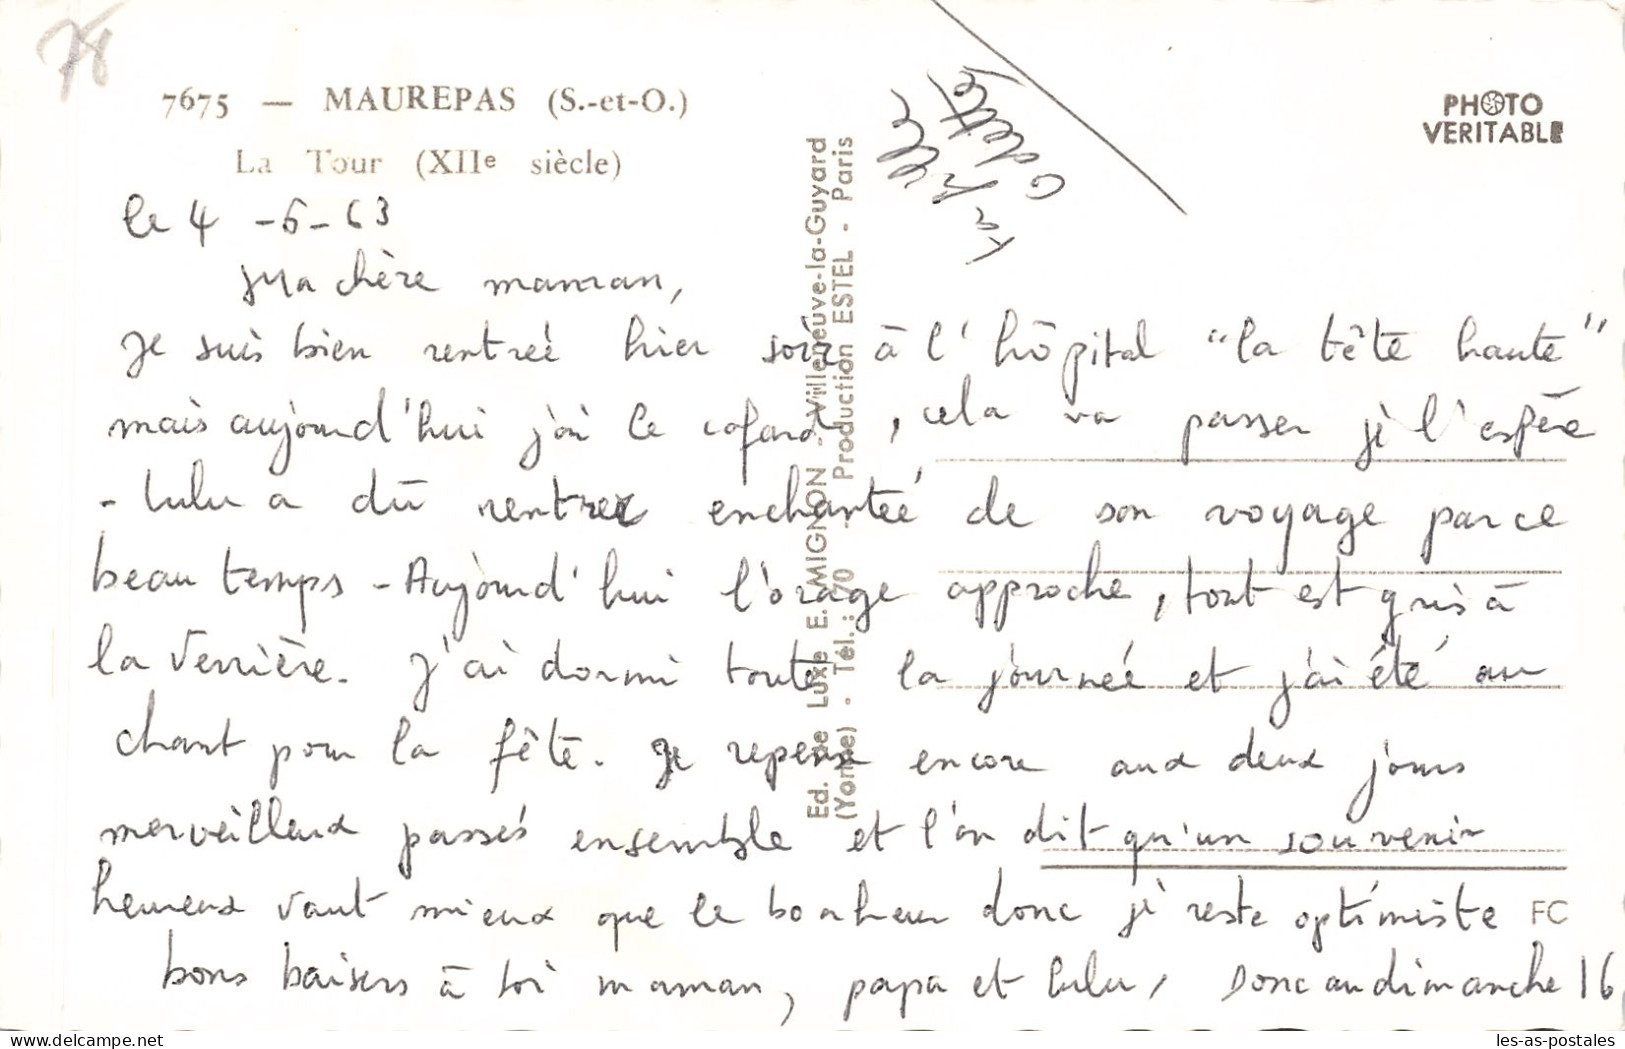 78
7675 — MAUREPAS (S.-et-O.)
La Tour (XIIe siècle)
PHOTO
VERITABLE
le 4 -6-63
Ma chère maman,
Je suis bien rentrée hier soir à l'hôpital "la tête haute"
mais aujourd'hui j'ai le cafard, cela va passer je l'espère
- Lulu a dû rentrer enchantée de son voyage par ce
beau temps - Aujourd'hui l'orage approche, tout est gris à
la Verrière. J'ai dormi toute la journée et j'ai été au
chant pour la fête. Je repense encore aux deux jours
merveilleux passés ensemble et l'on dit qu'un souvenir
heureux vaut mieux que le bonheur donc je reste optimiste
bons baisers à toi maman, papa et Lulu, Donc au dimanche 16
ta fille
Odette
Ed. de Luxe E. MIGNON - Villeneuve-la-Guyard
(Yonne) - Tél. : 70 - Production ESTEL - Paris
FC
les-as-postales
delcampe.net